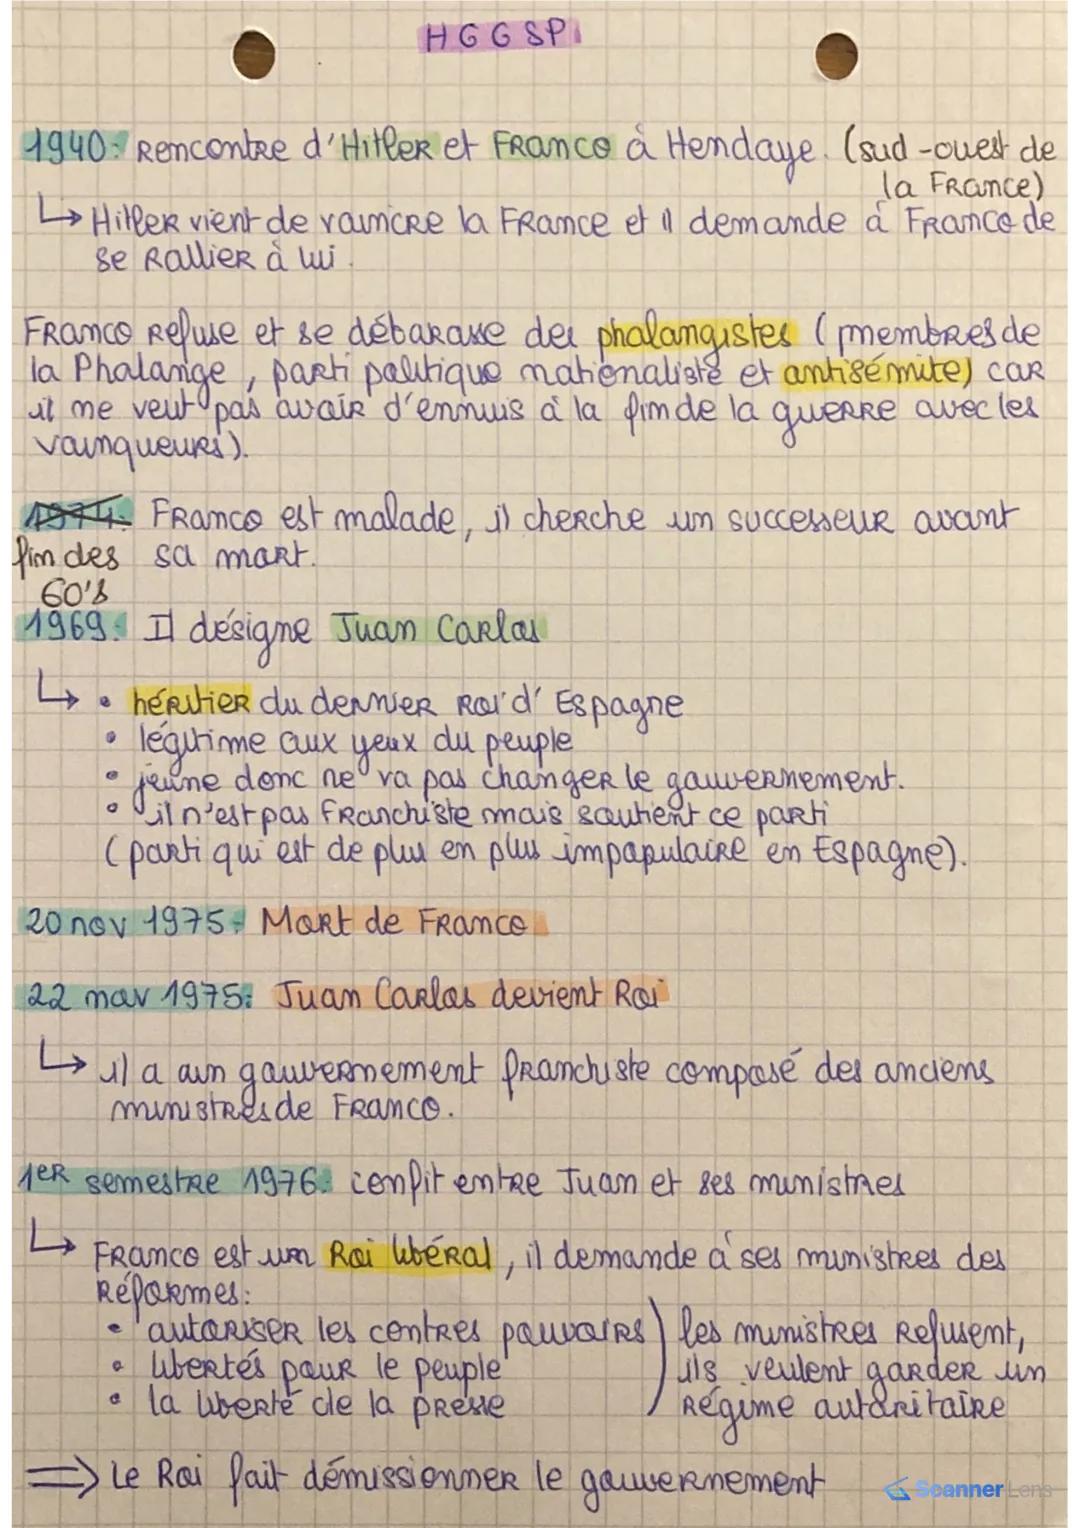 HGGSP
1940: Rencontre d'Hitler et Franco à Hendaye. (sud-ouest de
la France)
↳ Hitler vient de vaincre la France et il demande à Franco de
se rallier à lui.
Franco refuse et se débarasse des phalangistes (membres de
la Phalange, parti politique nationaliste et antisémite) car
il ne veut pas avoir d'ennuis à la fin de la guerre avec les
vainqueurs).
1974: Franco est malade, il cherche un successeur avant
fin des sa mort.
60's
1969: Il désigne Juan Carlos
↳ • héritier du dernier Roi d'Espagne
• légitime aux yeux du peuple
• jeune donc ne va pas changer le gouvernement.
• il n'est pas franchiste mais soutient ce parti
(parti qui est de plus en plus impopulaire en Espagne).
20 nov 1975: Mort de Franco
22 nov 1975: Juan Carlos devient Roi
↳ il a un gouvernement franchiste composé des anciens
ministres de Franco.
1er semestre 1976: conflit entre Juan et ses ministres
↳ Franco est un Roi libéral, il demande à ses ministres des
Réformes:
• autoriser les contres pouvoirs ) les ministres refusent,
• libertés pour le peuple ils veulent garder un
• la liberté de la presse régime autoritaire
⇒ Le Roi fait démissionner le gouvernement
Scanner Lens